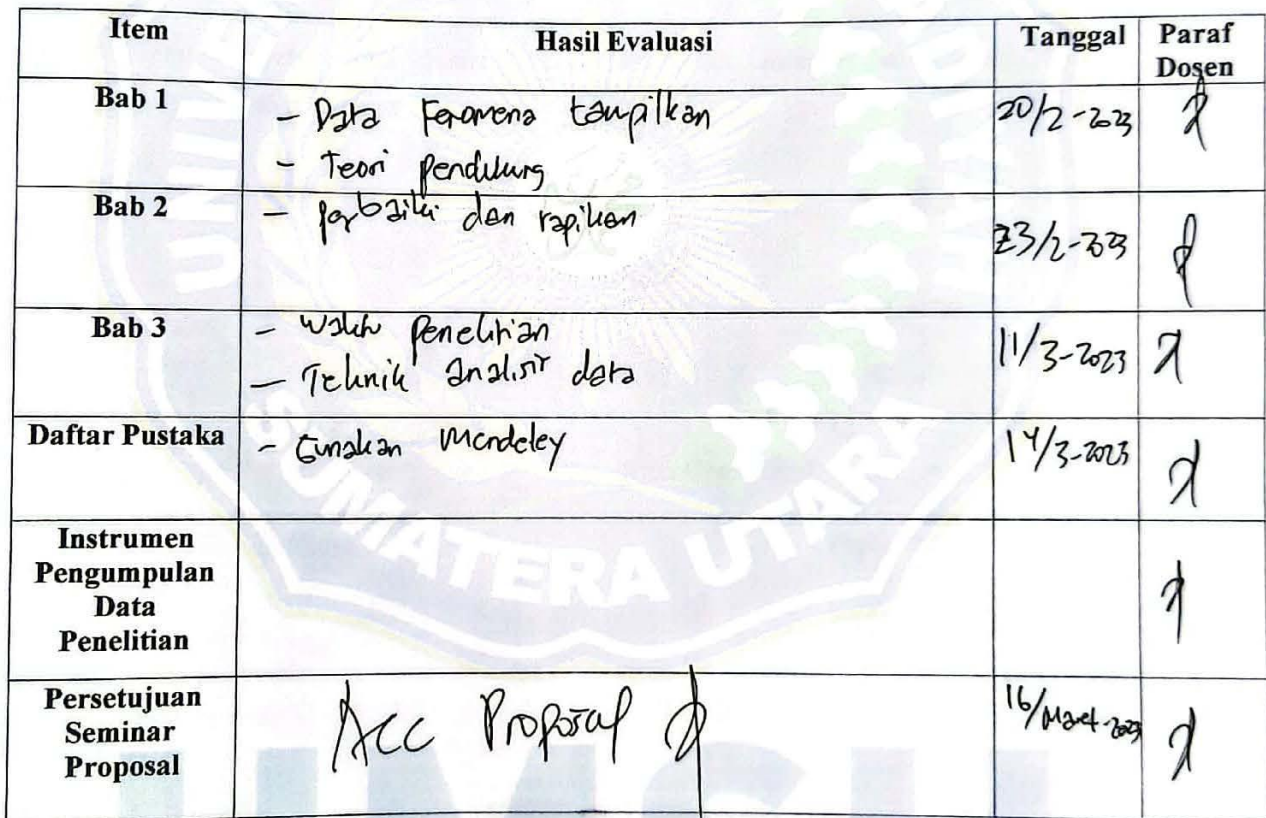 Item Hasil Evaluasi Tanggal Paraf
Dosen
Bab 1
- Data Fenomena tampilkan 20/2-2023
- Teori pendukung
Bab 2 - perbaiki dan rapikan
23/2-2023
Bab 3 - Waktu Penelitian 11/3-2023
- Teknik analisis data
Daftar Pustaka - Gunakan Mendeley 14/3-2023
Instrumen
Pengumpulan
Data
Penelitian
Persetujuan
Seminar
Proposal
Acc Proposal 16/Maret-2023
UNIVE
SUMATERA UTARA
UMSU